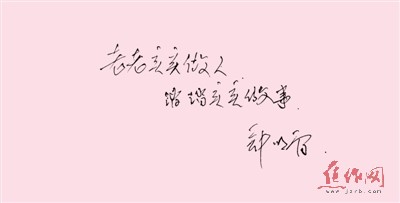 老老实实做人
踏踏实实做事
焦作网
www.jzrb.com